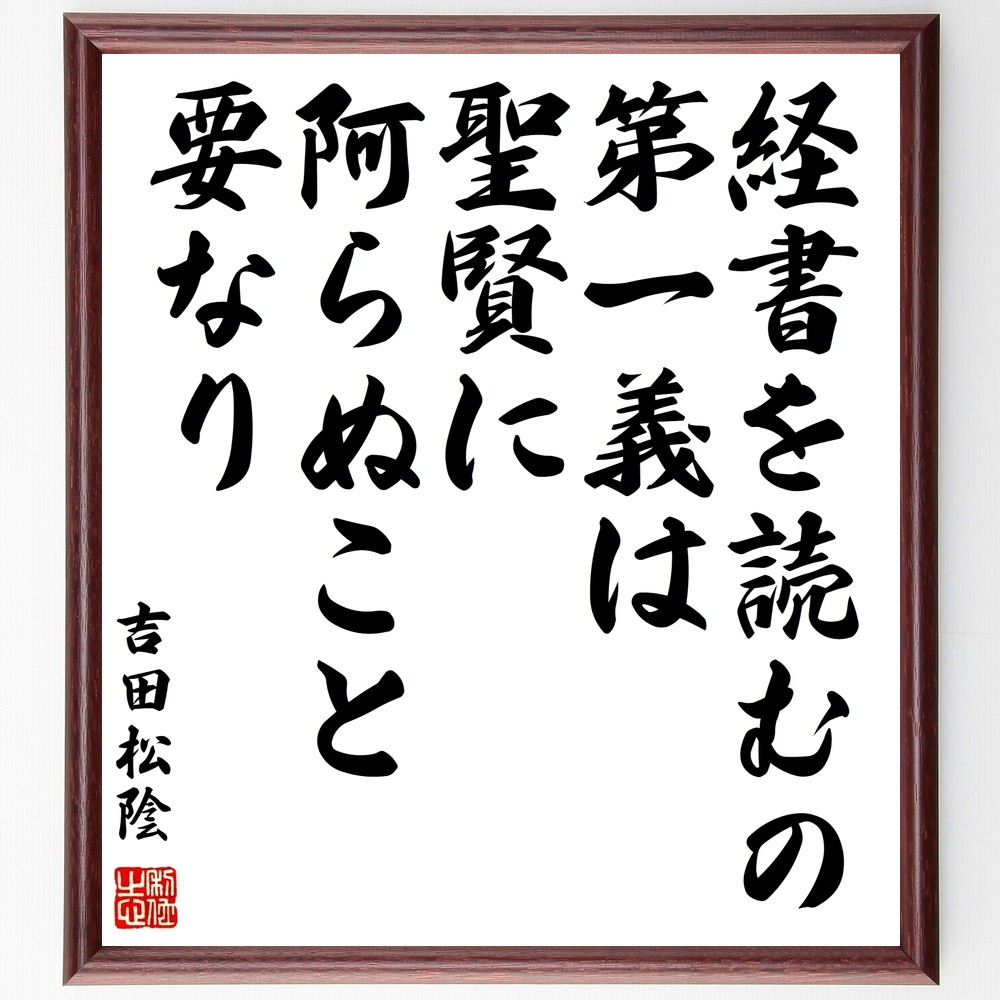 経書を読むの
第一義は
聖賢に
阿らぬこと
要なり
吉田松陰